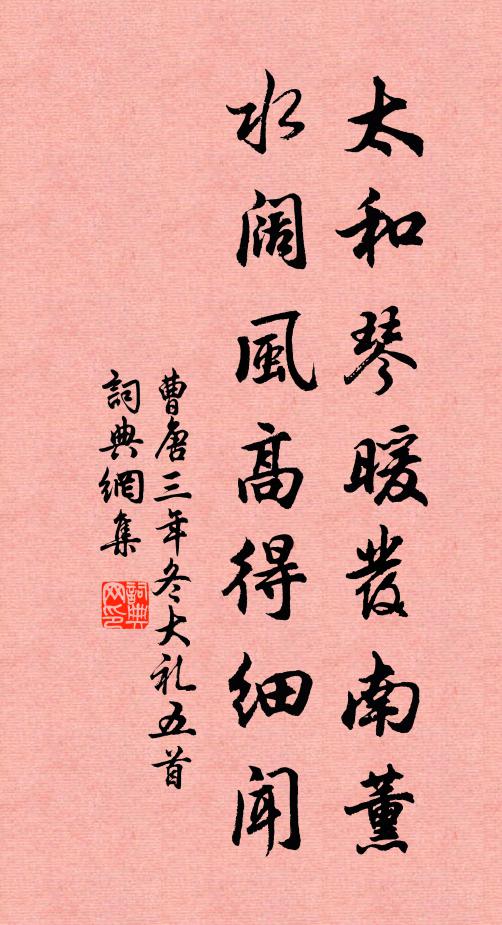 太和琴暖發南薰
水阔風高得细聞
曹唐三年冬大礼五首
詞典網集
詞典网印